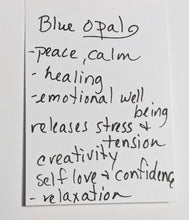 Blue Opal
-peace, calm
- healing
-emotional well
being
releases stress &
tension
creativity
self love & confidence
- relaxation